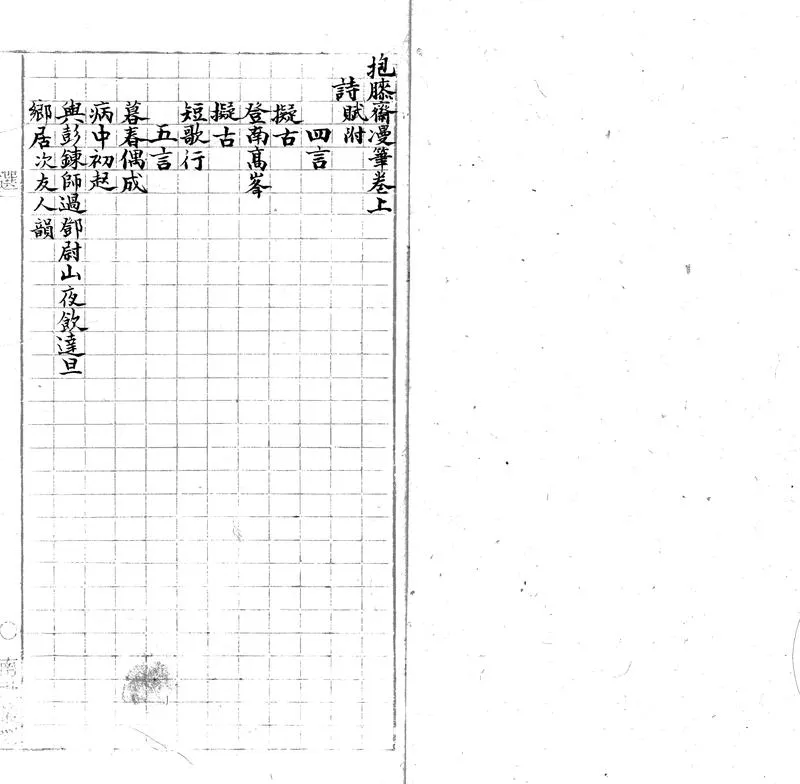 抱膝齋漫筆卷上
詩賦附
四言
擬古
登南髙峯
擬古
短歌行
五言
暮春偶成
病中初起
與彭鍊師過鄧尉山夜飲達旦
鄉居次友人韻
選